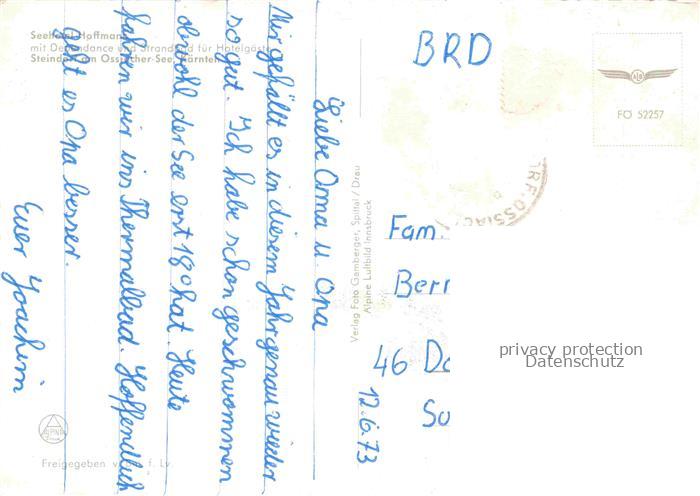 Seehotel Hoffmann
mit Dependance und Strandbad für Hotelgäste
Steindorf am Ossiacher-See, Kärnten
Liebe Oma u. Opa
Mir gefällt es in diesem Jahr genau wieder
so gut. Ich habe schon geschwommen
obwohl der See erst 18° hat. Heute
fahren wir ins Thermalbad. Hoffendlich
geht es Opa besser.
Euer Joachim
Freigegeben v. f. Lv.
Verlag Foto Gamberger, Spittal / Drau
Alpine Luftbild Innsbruck
BRD
FO 52257
OSSIAC
Fam.
Berr
46 Do
So
12.6.73
privacy protection
Datenschutz